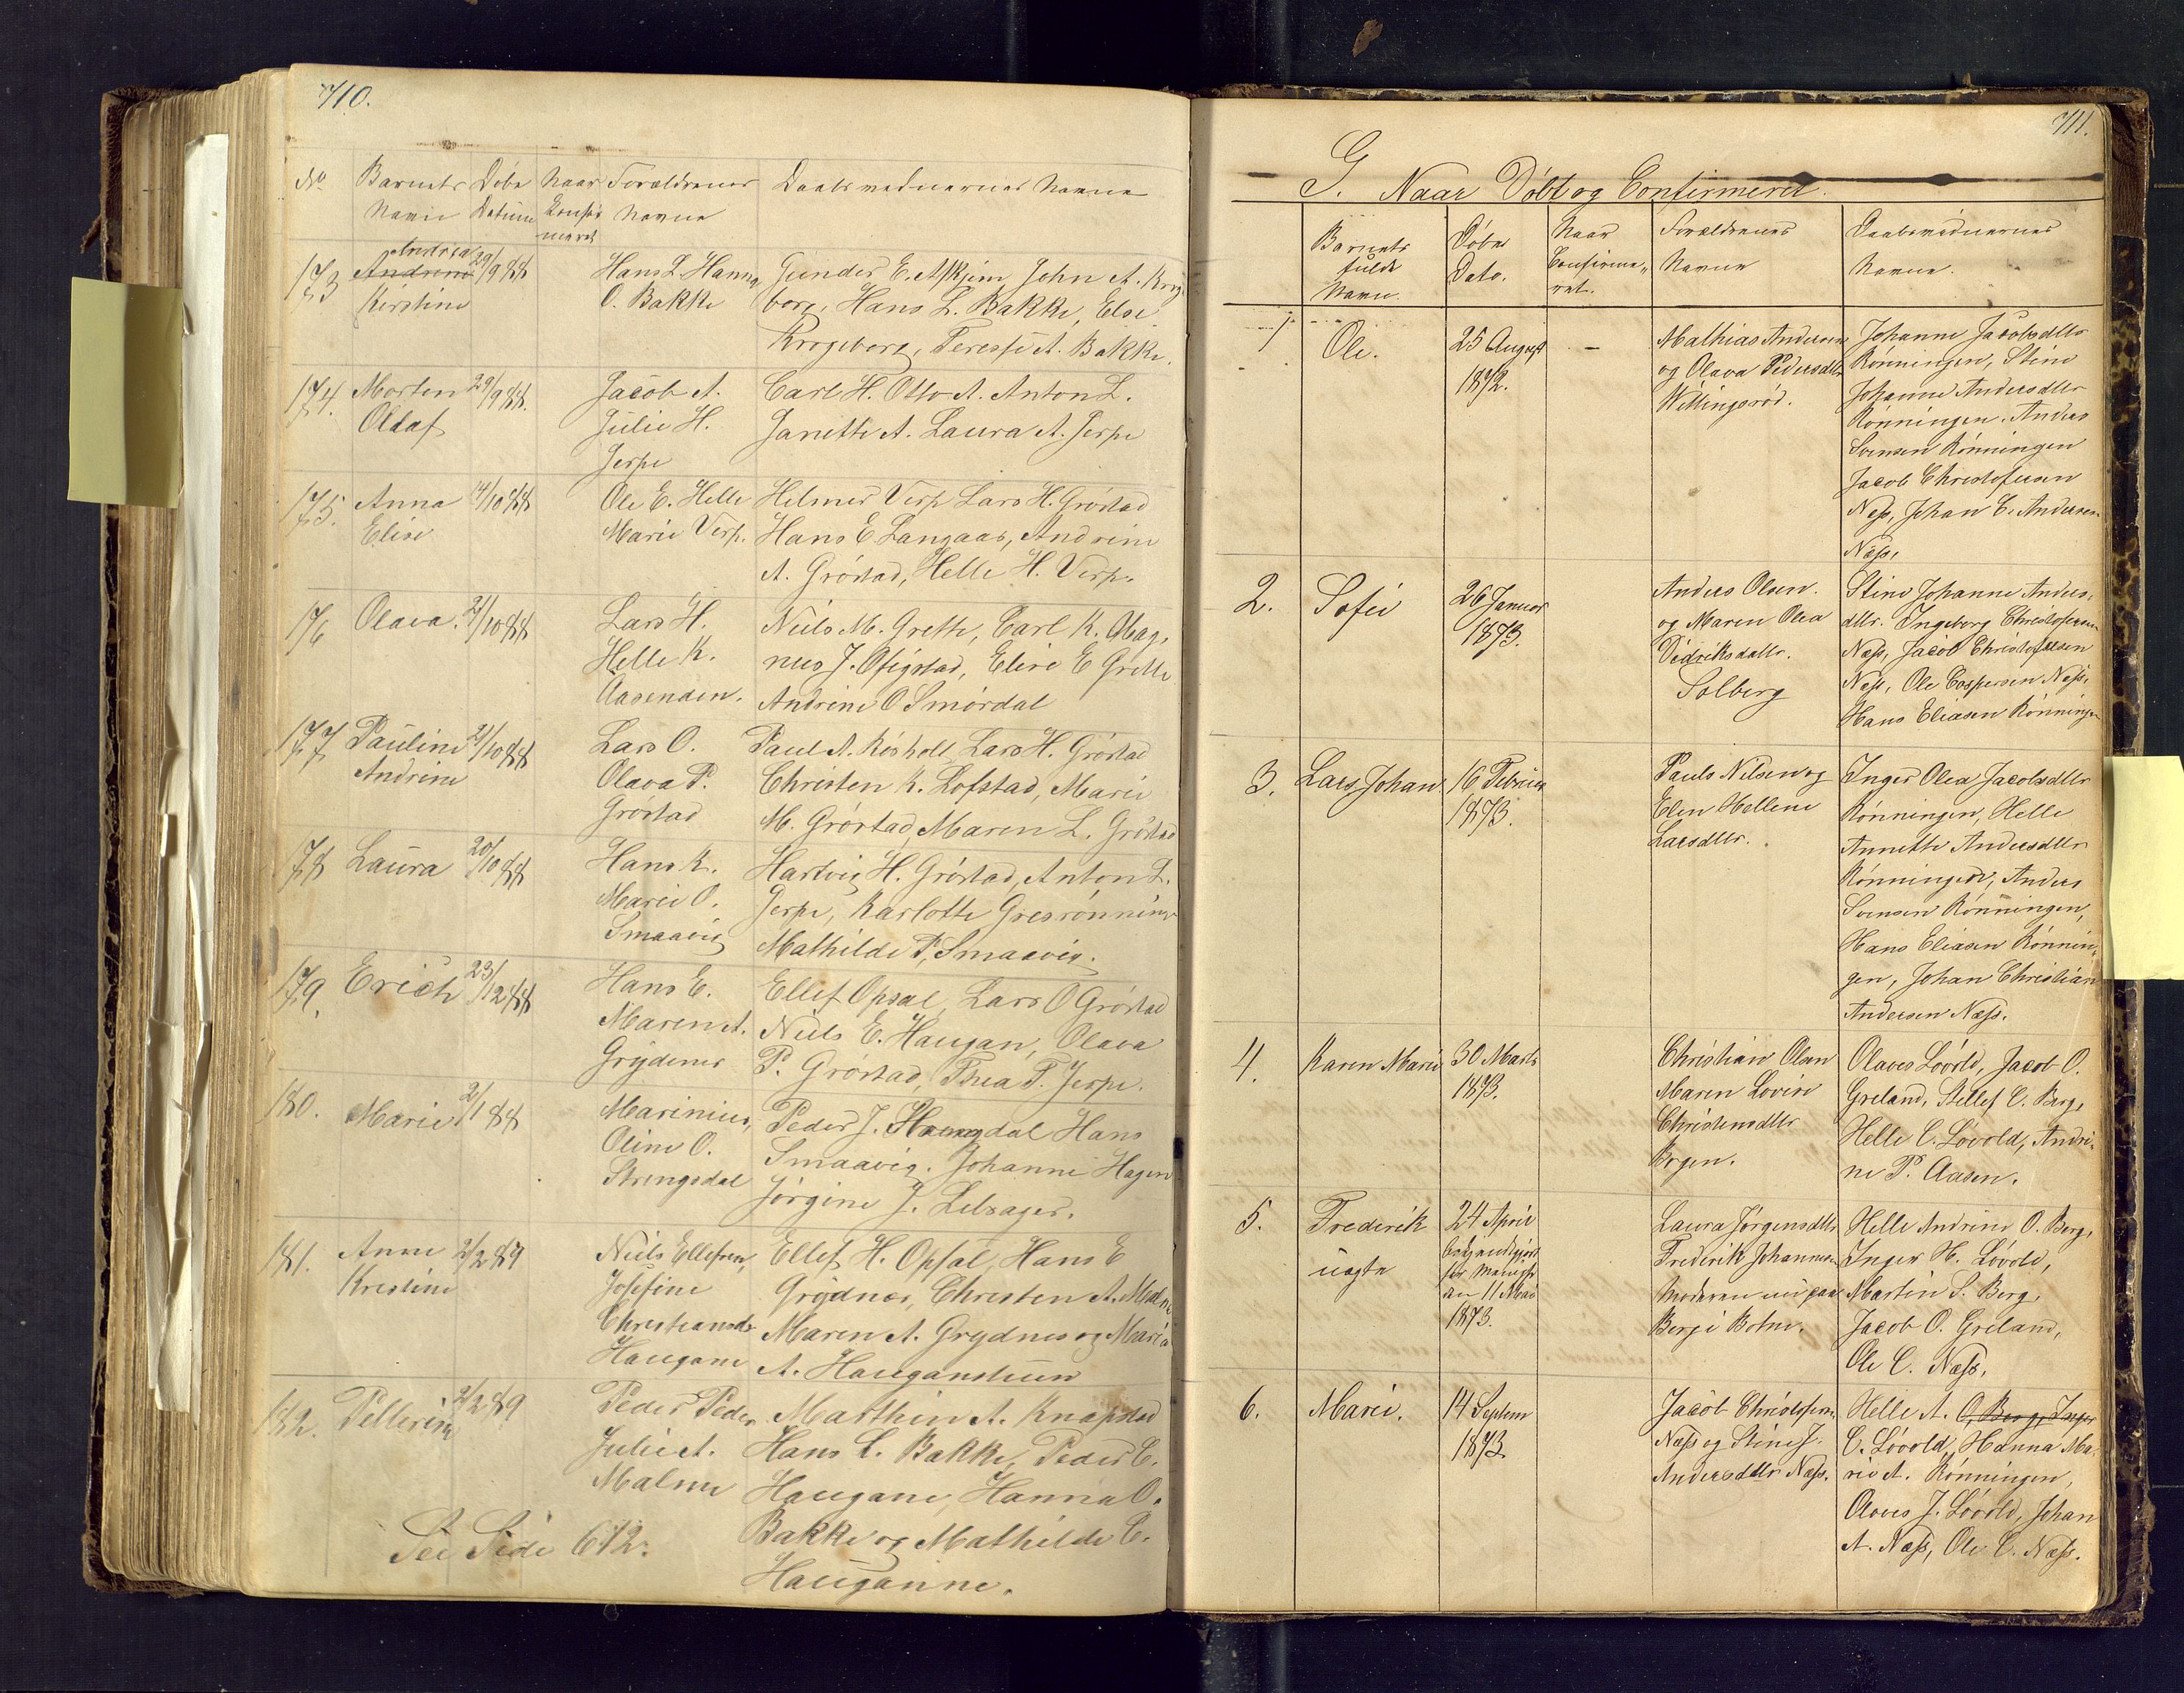 710.
No Barnets Døbe Naar Forældrenes Daabsvidnernes Navne
Navn Datum Confir Navne
meret
173 Andrea 29/9 88 Hans L. Hanna Gunder E. Askjem John A. Krog
Andrine O. Bakke borg, Hans L. Bakke, Else
Kirstine Krogeborg, Terese A. Bakke.
174. Morten 29/9 88. Jacob A. Carl H. Otto A. Anton L.
Oldaf Julie H. Janette A. Laura A. Jerpe
Jerpe
175. Anna 14/10 88 Ole E. Helle Helmer Verp Lars H. Grørstad
Elise Marie Verp. Hans E Langaas, Andrine
A. Grørstad, Helle H. Verp.
176 Olava. 21/10 88 Lars H. Niels M. Grette, Carl K. Mag,
Helle K. nus J. Ofigstad, Elise E Grette
Aasenden. Andrine O Smørdal
177 Pauline 21/10 88 Lars O. Paul A. Røsholt, Lars H. Grørstad
Andrine Olava P. Christen K. Lofstad, Marie
Grørstad M. Grørstad, Maren L. Grørstad
178 Laura 20/10 88 Hans K. Hartvig H. Grørstad, Anton L.
Marie O. Jerpe, Karlotte Gresrønning
Smaavig Mathilde P. Smaavig.
179. Erich 23/12 88 Hans E. Ellef Opsal, Lars O Grørstad
Maren A. Niels E. Haugan, Olava
Grydenes P. Grørstad, Thea T. Jerpe.
180. Marie 2/1 88 Marinius, Peder J. Haugdal Hans
Oline O. Smaavig. Johanne Hagen
Strengsdal Jørgine J. Lelsager.
181. Anne 2/2 89 Niels Ellefsen, Ellef H. Opsal, Hans E
Kristine Josefine Grydnes, Christen A. Malm
Christiansd. Maren A. Grydnes og Maria
Haugane A. Hauganstuen
182. Pellerine 2/2 89 Peder Peder Marthin A. Knapstad
Julie A. Hans L. Bakke, Peder C.
Malmn Haugane, Hanna O.
See Side 672. Bakke og Mathilde C.
Hauganne.
711.
G. Naar Døbt og Confirmeret.
Barnets Døbe Naar Forældrenes Daabsvidnernes
fulde Dato. Confirme„ Navne Navne.
Navn. ret.
1 Ole. 25 August – Mathias Andersen Johanne Jacobsdtr
1872. og Olava Pedersdtr Rønningen, Stine
Wettingsrød. Johanne Andersdtr
Rønningen. Anders
Svensen Rønningen
Jacob Christofersen
Næss, Johan C. Andersen
Næss,
2. Sofie 26 Januar Anders Olsen. Stine Johanne Anders,
1873. og Maren Olea dtr. Ingeborg Christofersen
Didriksdatter. Næss, Jacob Christofersen
Solberg Næss, Ole Caspersen Næss,
Hans Eliasen Rønningen
3. Lars Johan 16 Februar Pauls Nilsen og Inger Olea Jacobsdtr
1873. Elen Hellene Rønningen, Helle
Larsdtr. Annette Andersdtr
Rønningen, Anders
Svensen Rønningen,
Hans Eliasen Rønnin„
gen, Johan Christian
Andersen Næss.
4. Karen Marie 30 Marts Christian Olsen Olaves Løvold, Jacob O.
1873. Maren Lovise Greland, Stellef C. Berg,
Christensdtr Helle C. Løvold, Andri„
Bogen. ne P. Aasen.
5. Frederik 24 April Laura Jørgensdtr Helle Andrine O. Berg,
uægte bekjendtgjort Frederik Johannesen Inger H. Løvold,
for Menigh Moderen nu paa Martin S. Berg,
den 11 Mai Berg i Botne. Jacob O. Greland,
1873. Ole C. Næss,
6. Marie. 14 Septem Jacob Christofersen Helle A. O. Berg, Inger
1873. Næss og Stine J. C. Løvold, Hanna Ma„
Andersdtr Næss. rie A. Rønningen,
Olaves J. Løvold, Johan
A. Næss, Ole C. Næss.